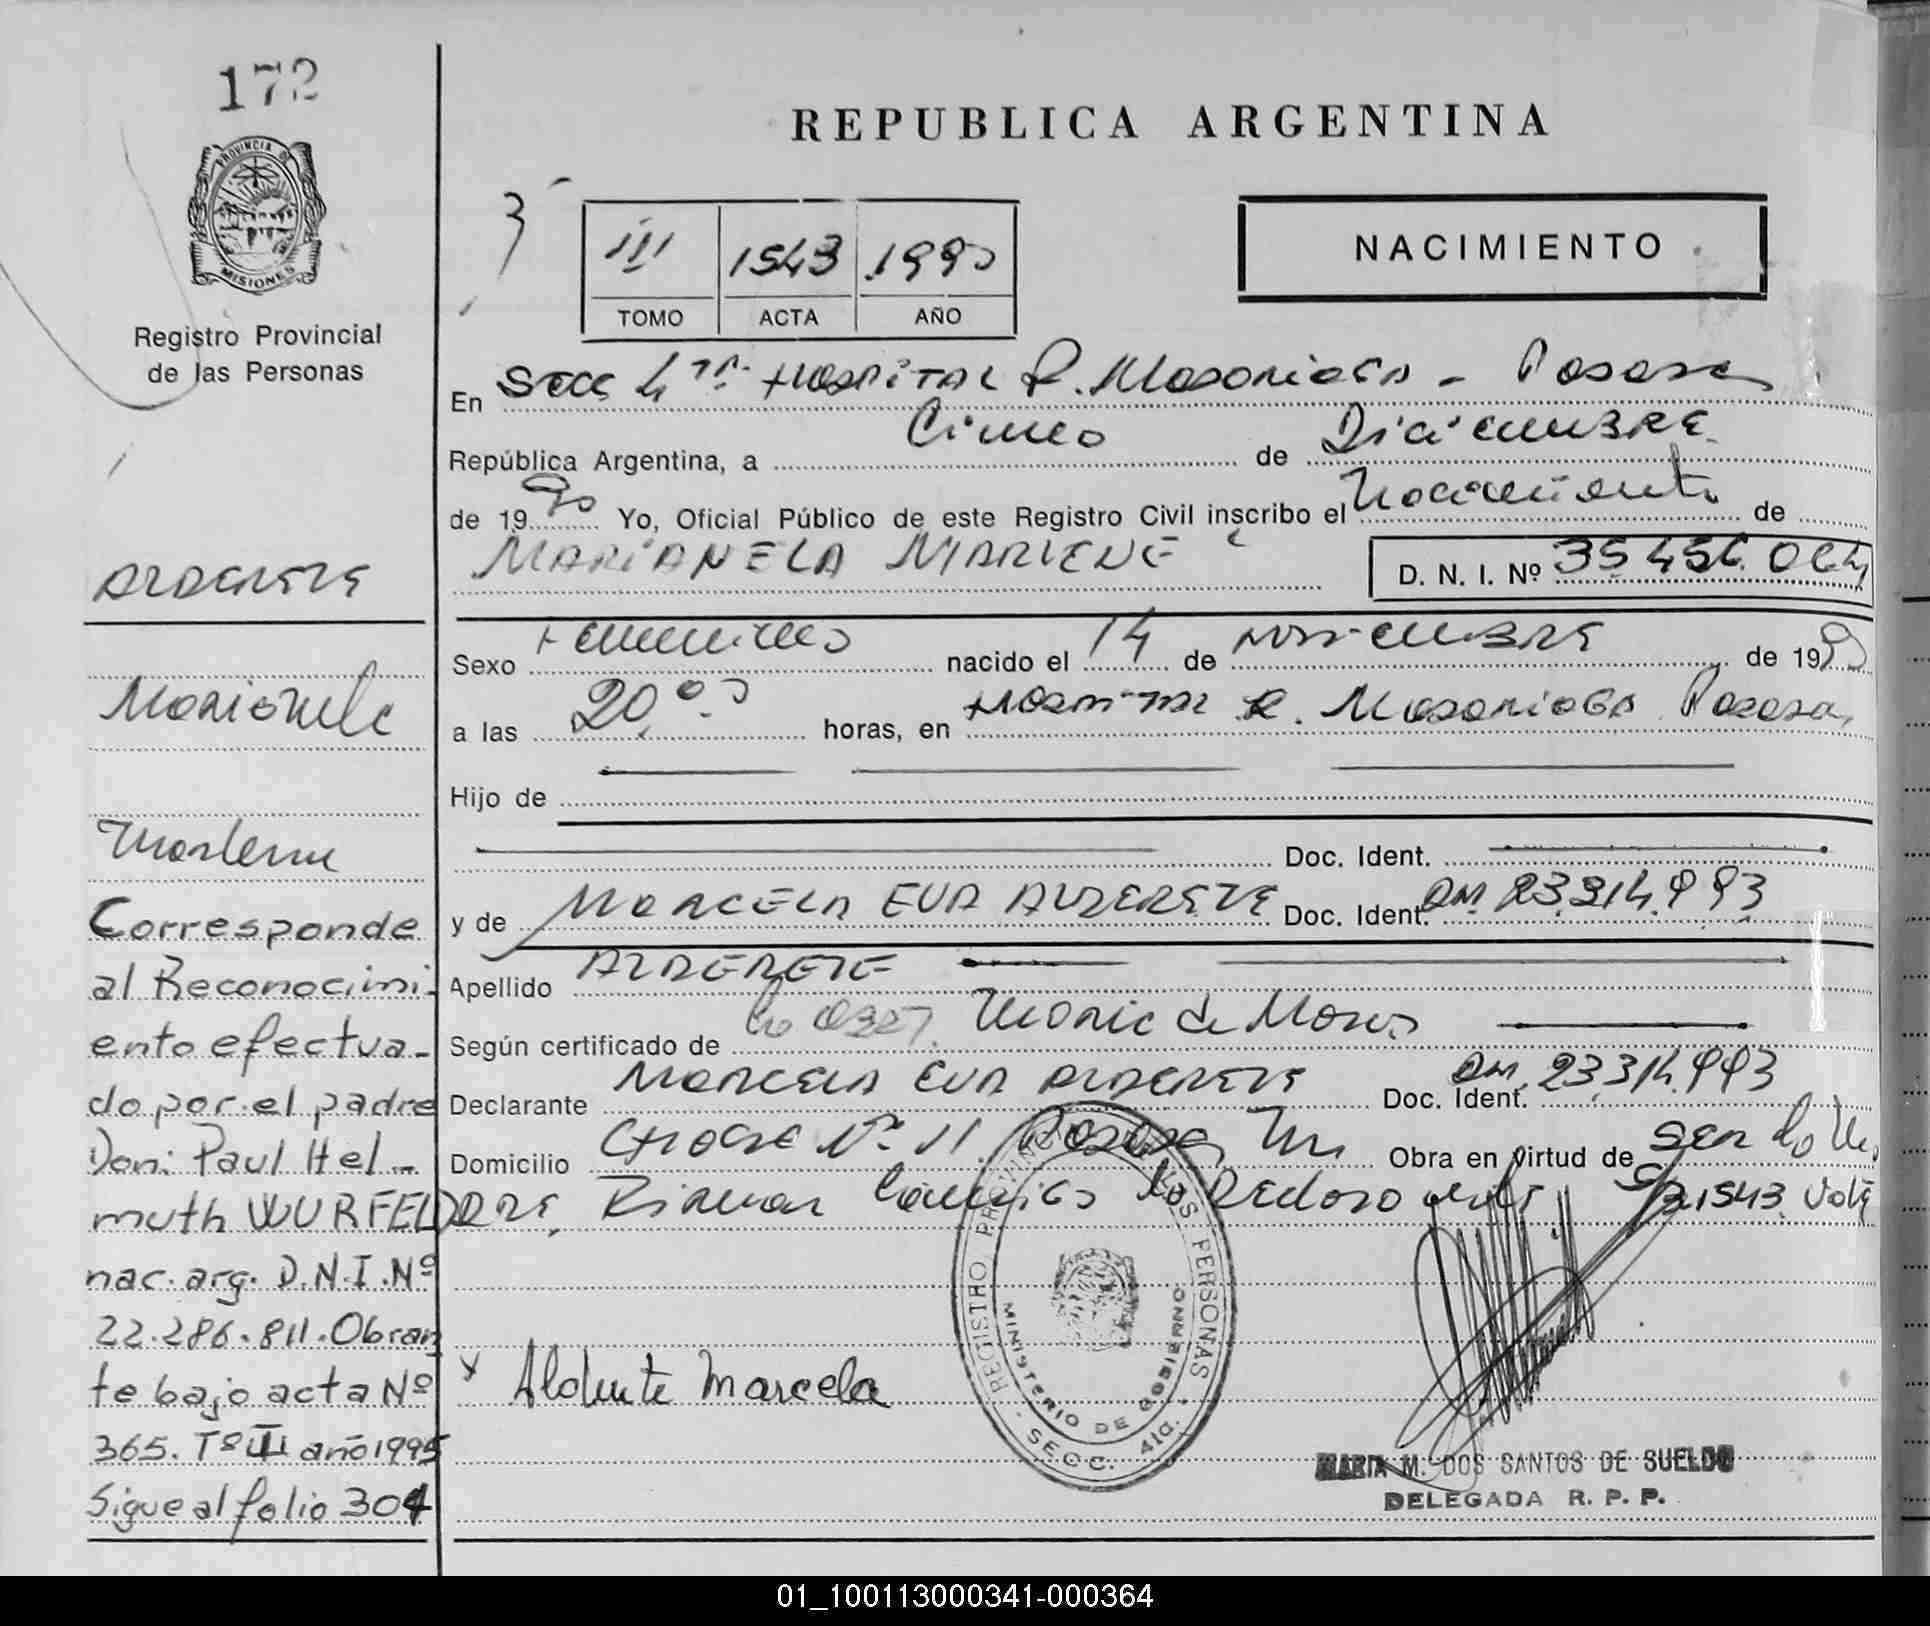 172
PROVINCIA DE
MISIONES
Registro Provincial
de las Personas
REPUBLICA ARGENTINA
3
III 1543 1990
TOMO ACTA AÑO
NACIMIENTO
En Secc 4ta. Hospital R. Madariaga - Posadas
República Argentina, a Cinco de Diciembre
de 1990 Yo, Oficial Público de este Registro Civil inscribo el Nacimiento de
MARIANELA MARLENE
D. N. I. Nº 35.456.064
Sexo Femenino nacido el 14 de Noviembre de 1990
a las 20,00 horas, en Hospital R. Madariaga Posadas
Hijo de
Doc. Ident.
y de MARCELA EVA ALDERETE Doc. Ident. 23.314.993
Apellido ALDERETE
Según certificado de Maria de
Declarante MARCELA EVA ALDERETE Doc. Ident. 23.314.993
Domicilio CHACRA Nº 11 Posadas Obra en Virtud de ser la
Madre, Firman conmigo 1543
Alderete Marcela
REGISTRO PROVINCIAL DE LAS PERSONAS
MINISTERIO DE GOBIERNO
SECC. 4ta.
MARTA M. DOS SANTOS DE SUELDO
DELEGADA R. P. P.
ALDERETE
Marianela
Marlene
Corresponde
al Reconocimi-
ento efectua-
do por el padre
Don: Paul Hel-
muth WURFEL
nac. arg. D.N.I.Nº
22.286.811.Obran
te bajo acta Nº
365. Tº III año 1995
Sigue al folio 304
01_100113000341-000364